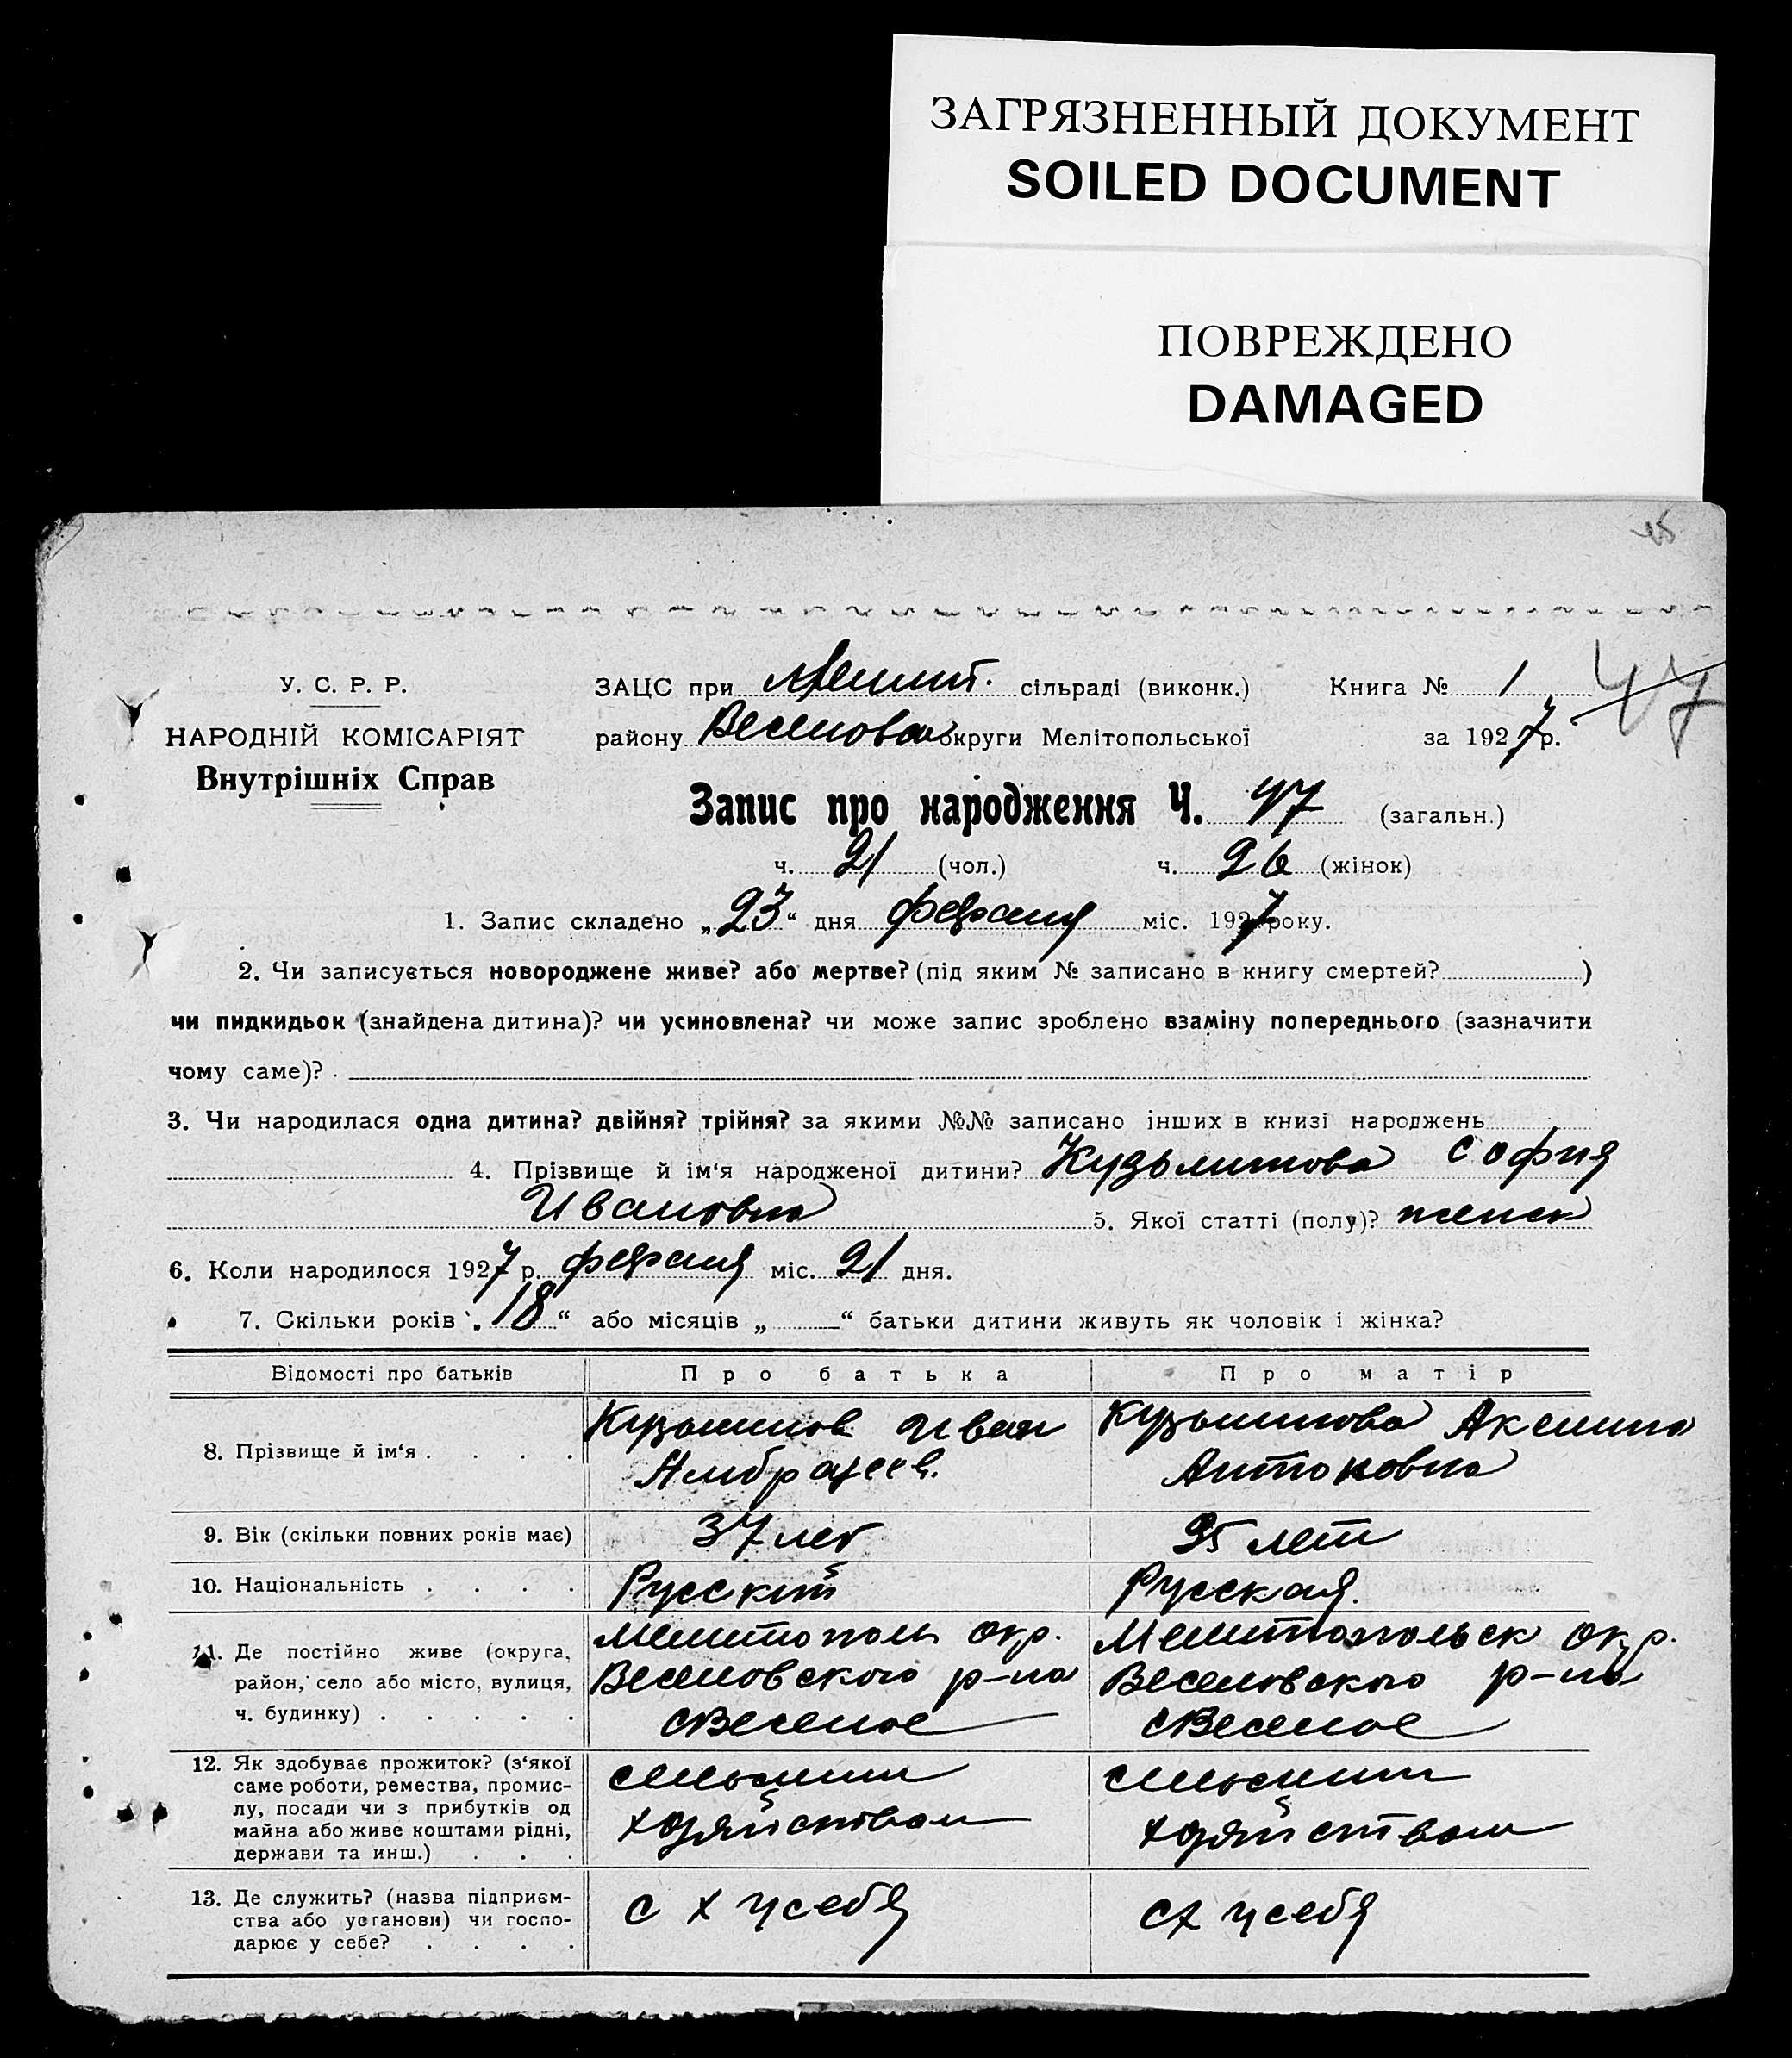 ЗАГРЯЗНЕННЫЙ ДОКУМЕНТ
SOILED DOCUMENT
ПОВРЕЖДЕНО
DAMAGED
У. С. Р. Р.
НАРОДНІЙ КОМІСАРІЯТ
Внутрішніх Справ
ЗАЦС при сільраді (виконк.)
Книга № 1
47
району Веселовск округи Мелітопольської
за 1927 р.
Запис про народження Ч. 47 (загальн.)
ч. 21 (чол.) ч. 26 (жінок)
1. Запис складено „23“ дня февраля міс. 1927 року.
2. Чи записується новороджене живе? або мертве? (під яким № записано в книгу смертей? )
чи пидкидьок (знайдена дитина)? чи усиновлена? чи може запис зроблено взаміну попереднього (зазначити
чому саме)?
3. Чи народилася одна дитина? двійня? трійня? за якими №№ записано інших в книзі народжень
4. Прізвище й ім‘я народженої дитини? Кузьминова София
Ивановна 5. Якої статті (полу)? женск
6. Коли народилося 1927 р. февраля міс. 21 дня.
7. Скільки років „18“ або місяців „ “ батьки дитини живуть як чоловік і жінка?
Відомості про батьків Про батька Про матір
8. Прізвище й ім‘я . . . .
Кузьминов Иван
Кузьминова Аксинья
Антоновна
9. Вік (скільки повних років має) 37 лет 35 лет
10. Національність . . . . Русский Русская.
11. Де постійно живе (округа,
район, село або місто, вулиця,
ч. будинку) . . . . .
Мелитополь окр.
Веселовского р-на
с Веселое
Мелитопольск окр.
Веселовского р-на
с Веселое
12. Як здобуває прожиток? (з‘якої
саме роботи, ремества, промис-
лу, посади чи з прибутків од
майна або живе коштами рідні,
держави та инш.) . . .
сельским
хозяйством
сельским
хозяйством
13. Де служить? (назва підприєм-
ства або установи) чи госпо-
дарює у себе? . . . .
с х у себя
сх у себя